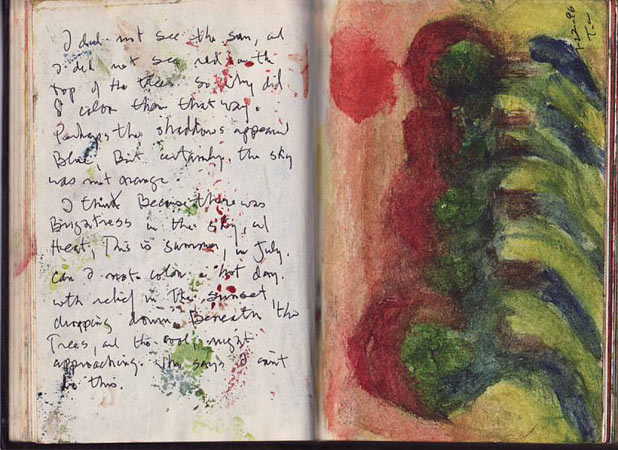 I did not see the sun, and
I did not see red on the
top of the trees so why did
I color them that way.
Perhaps the shadows appeared
Blue. But certainly, the sky
was not orange
I think Because there was
Brightness in the sky, and
Heat, This is summer, in July.
can I not color a hot day.
with relief in the sunset
dropping down Beneath the
Trees, and the cool night
approaching. Who says I can't
do this.
7-2-96